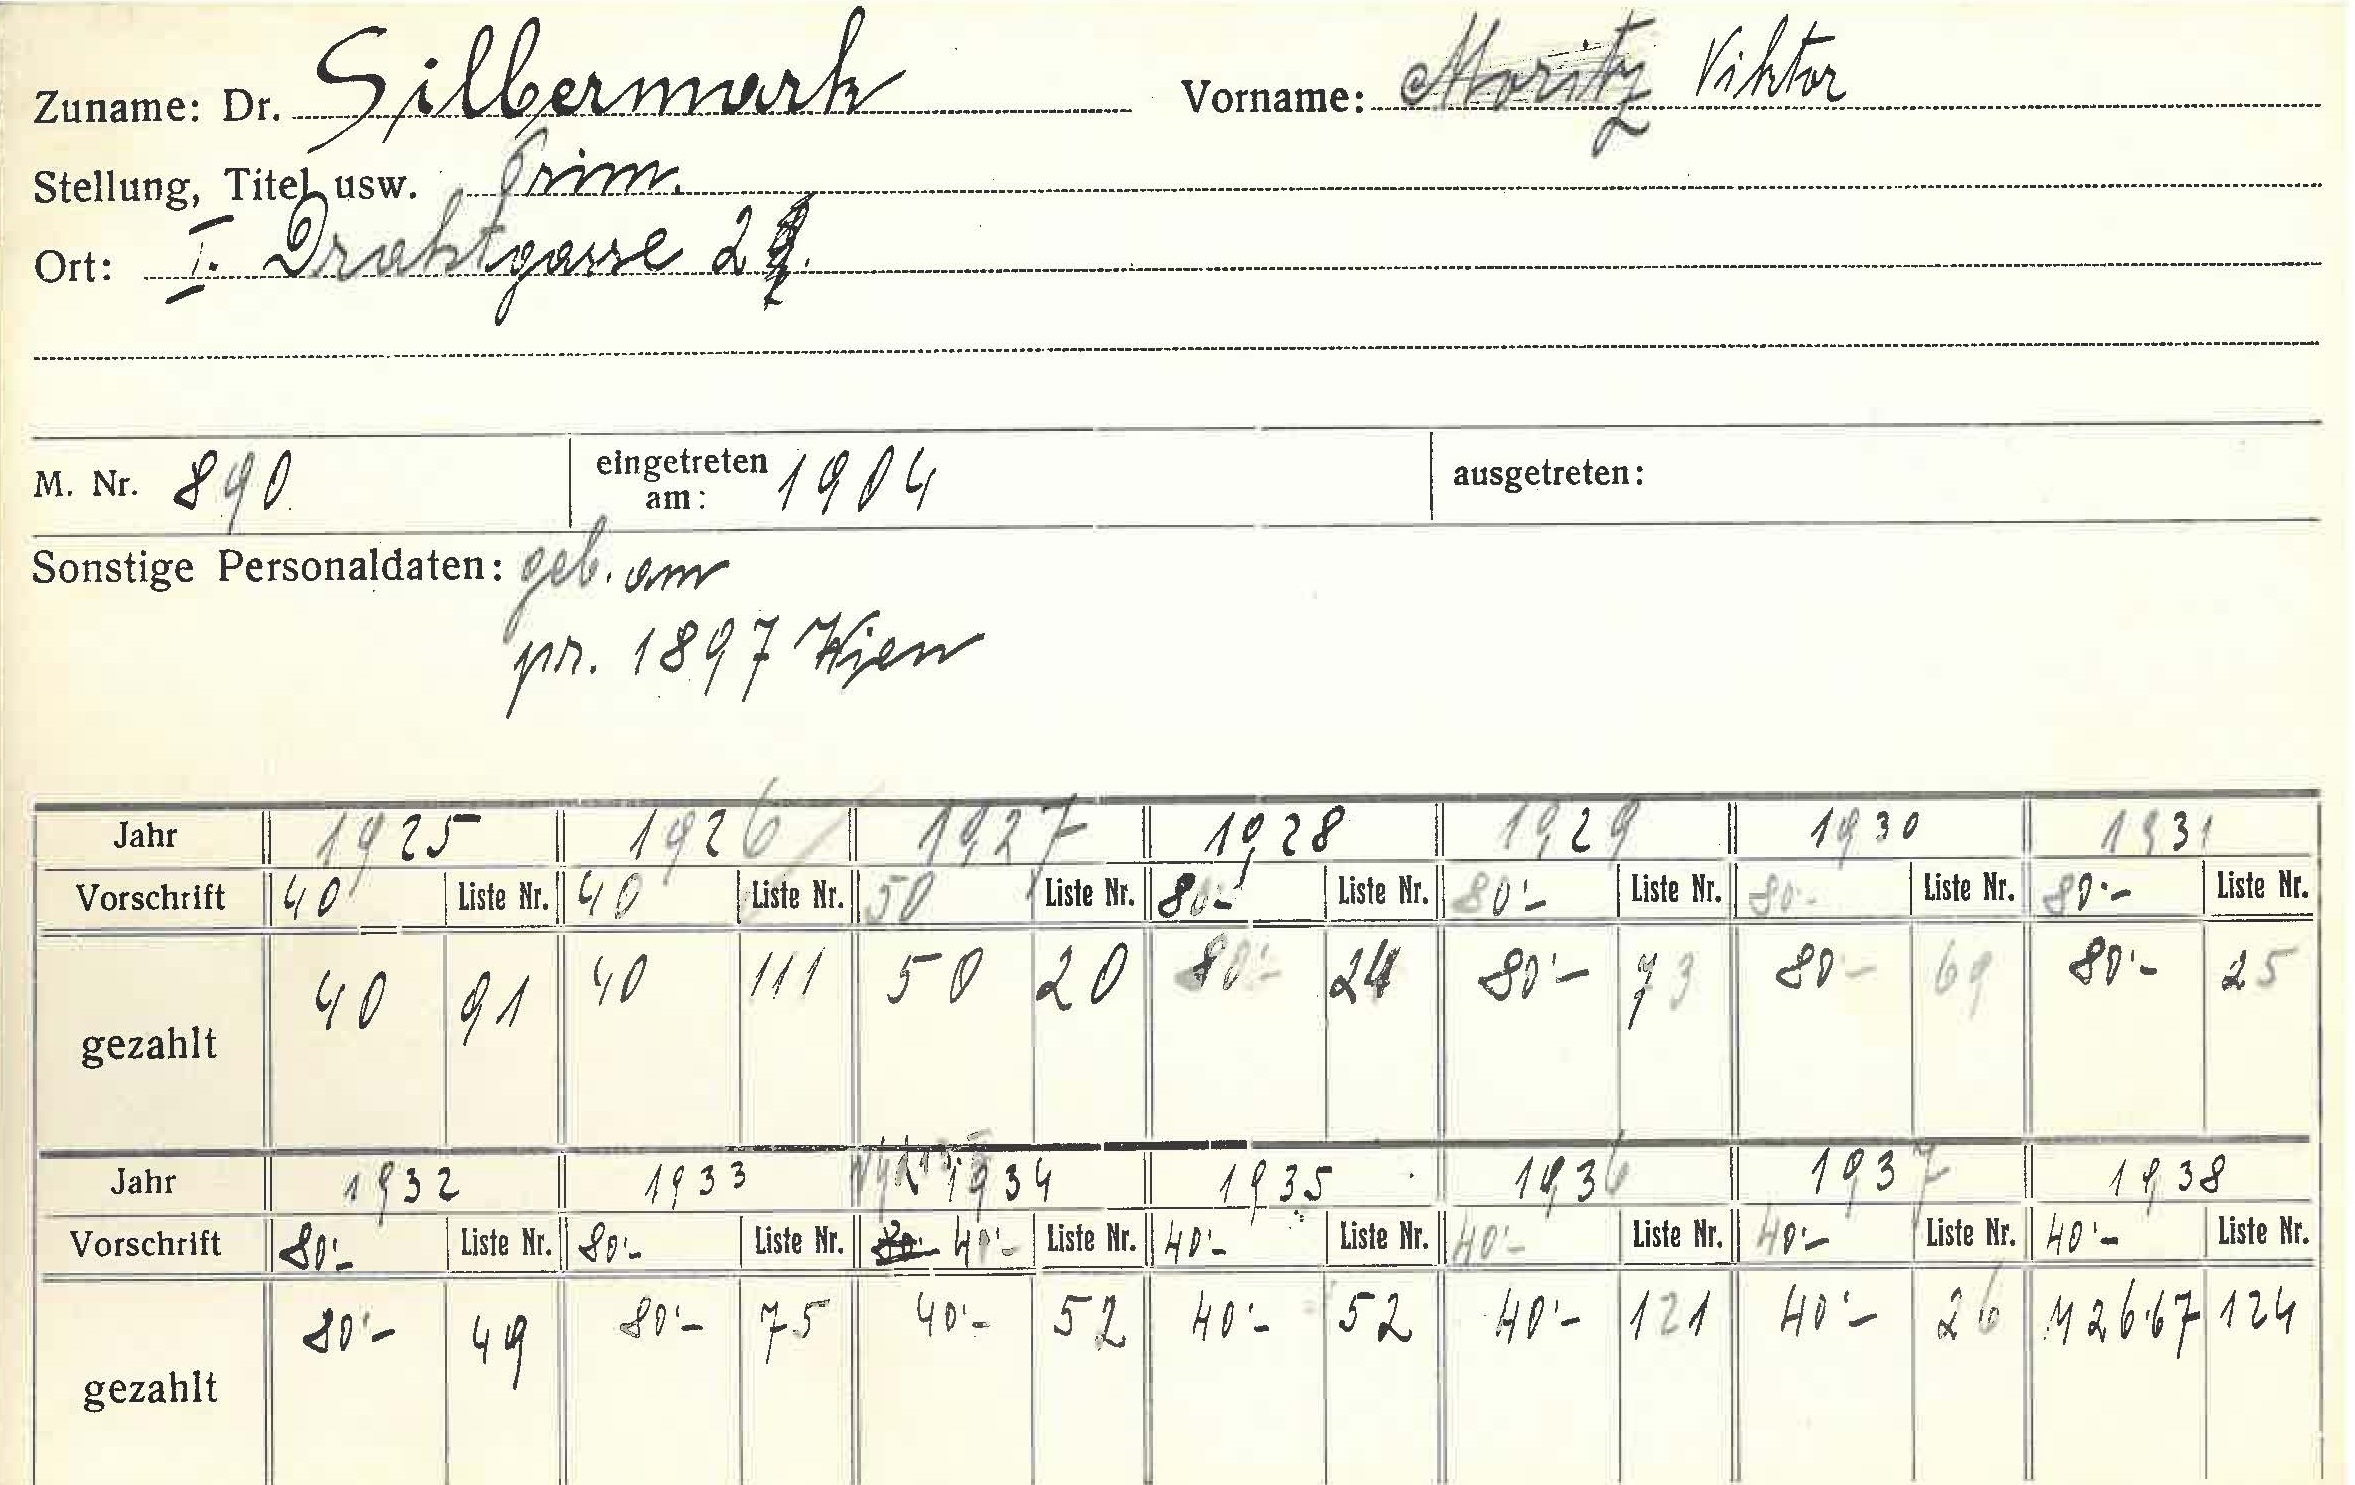 Zuname: Dr. Silbermark Vorname: Moritz Viktor
Stellung, Titel usw. Prim.
Ort: I. Drahtgasse 2
M. Nr. 890 eingetreten am: 1904 ausgetreten:
Sonstige Personaldaten: geb. am
pr. 1897 Wien
Jahr 1925 1926 1927 1928 1929 1930 1931
Vorschrift 40 Liste Nr. 40 Liste Nr. 50 Liste Nr. 80·- Liste Nr. 80·- Liste Nr. 80·- Liste Nr. 80·- Liste Nr.
gezahlt 40 91 40 111 50 20 80·- 24 80·- 73 80- 69 80·- 25
Jahr 1932 1933 1934 1935 1936 1937 1938
Vorschrift 80·- Liste Nr. 80·- Liste Nr. 80·- 40·- Liste Nr. 40·- Liste Nr. 40·- Liste Nr. 40·- Liste Nr. 40·- Liste Nr.
gezahlt 80·- 49 80·- 75 40·- 52 40·- 52 40·- 121 40·- 26 M 26·67 124